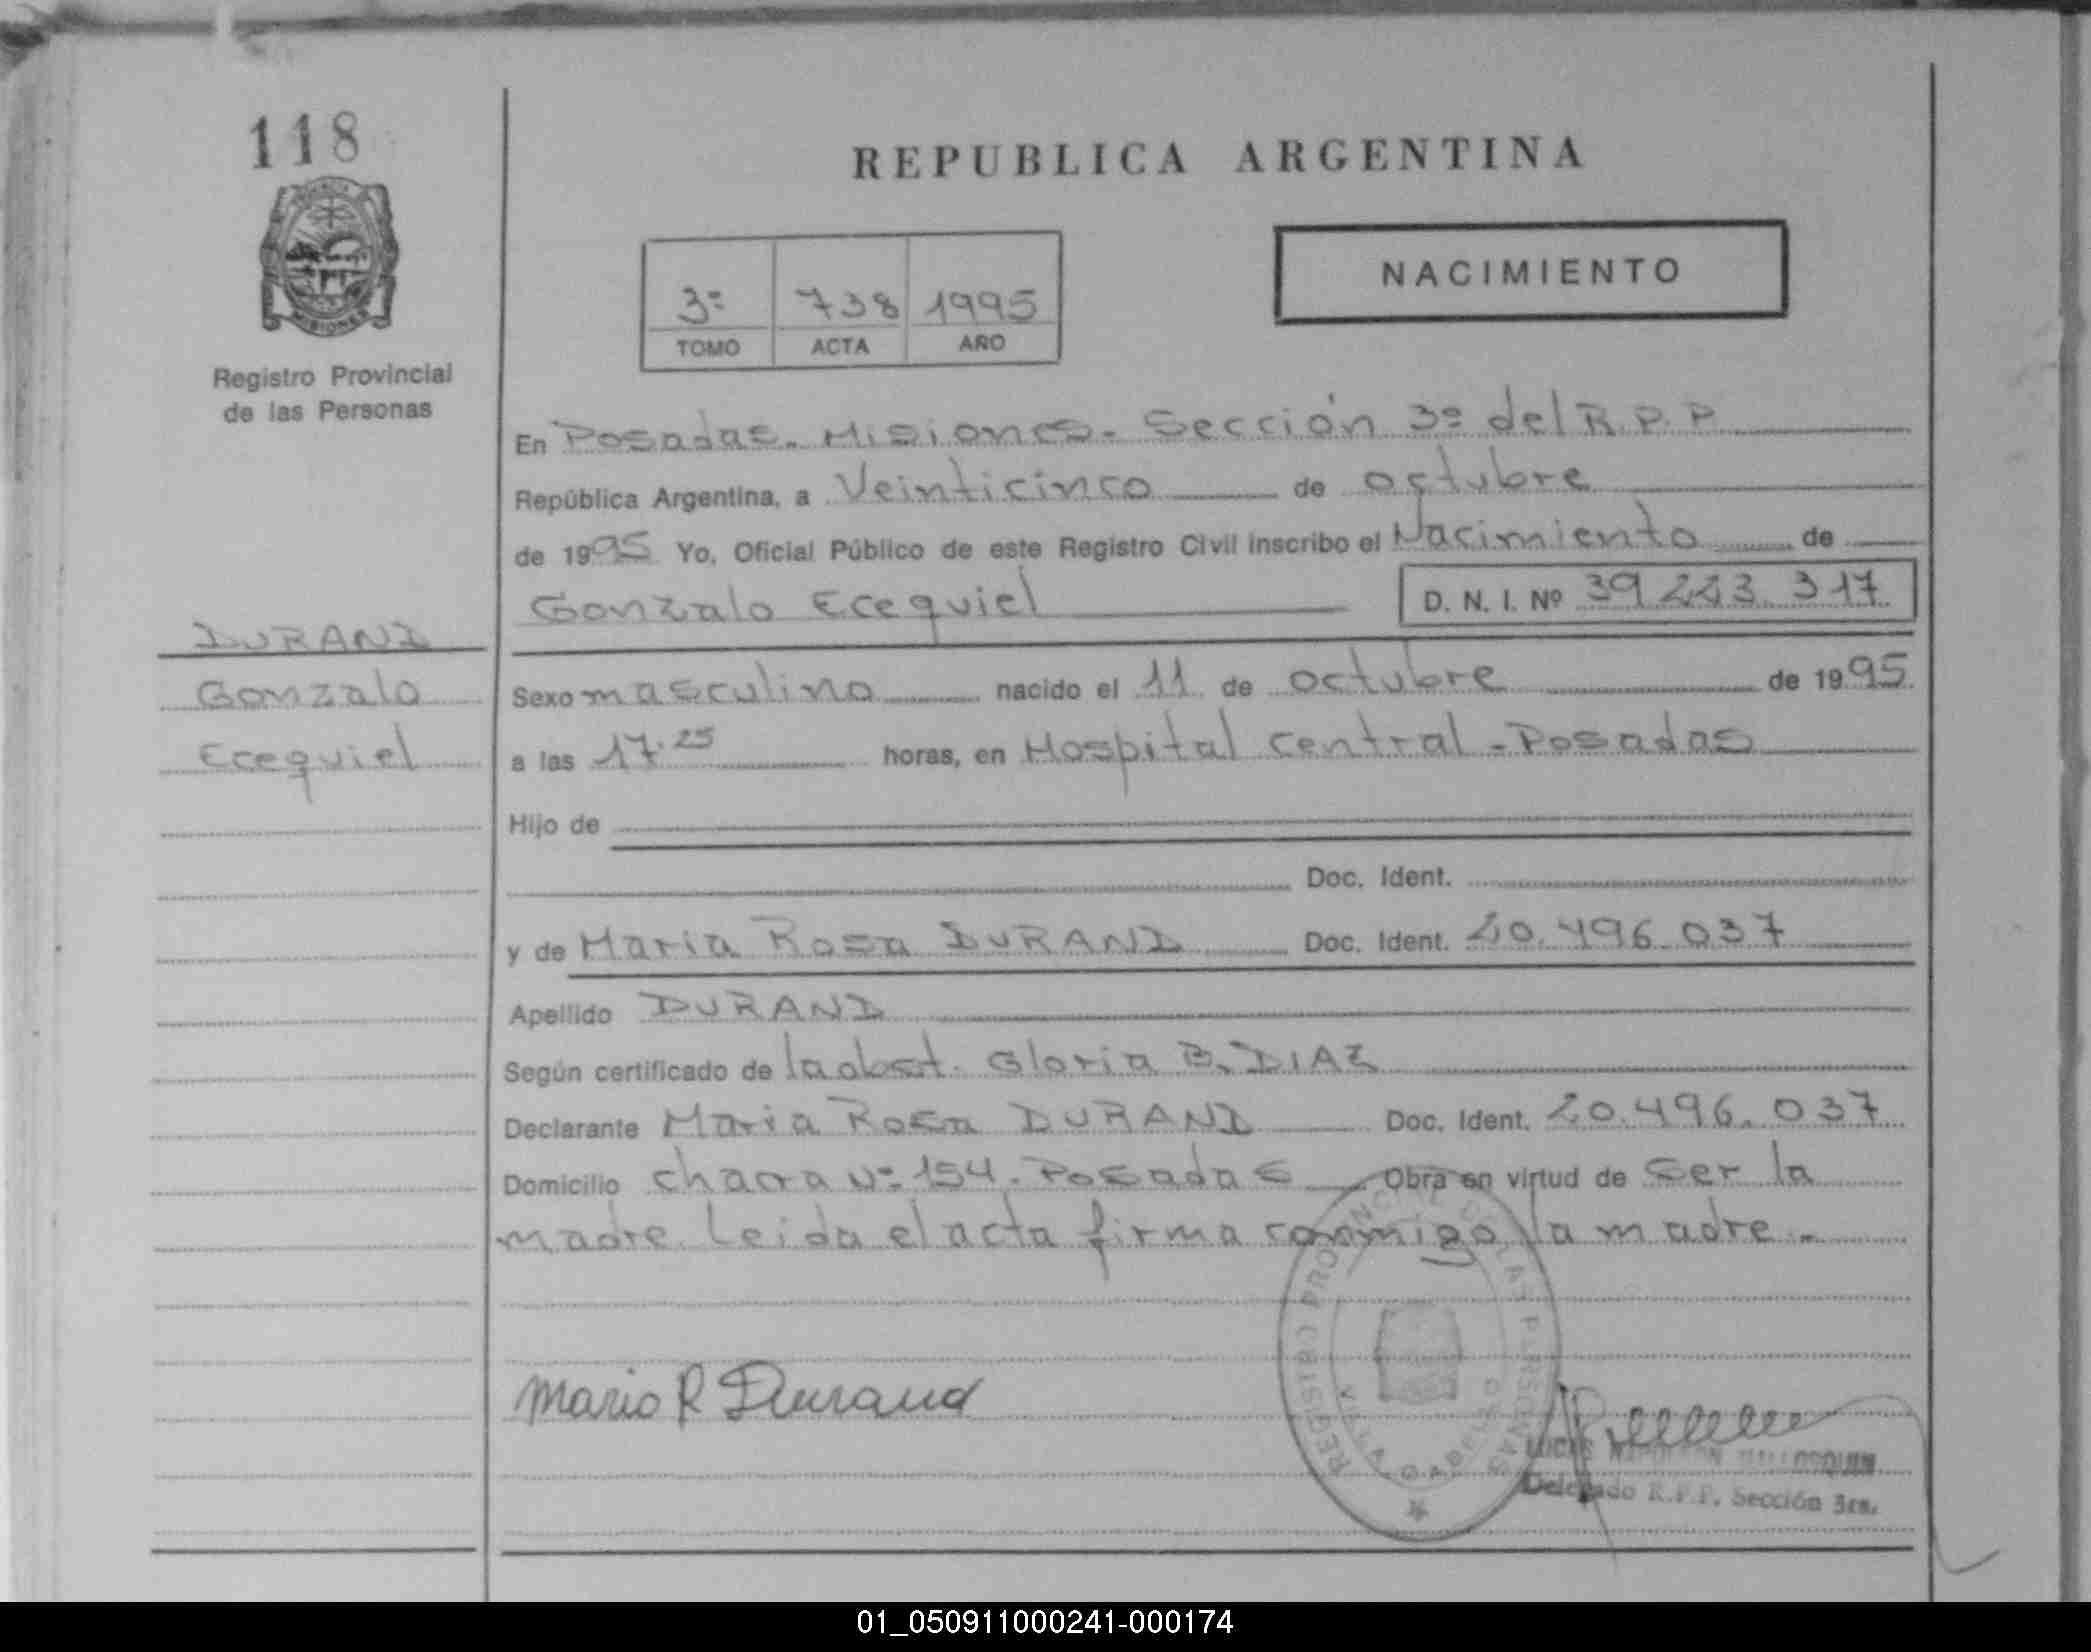 118
REPUBLICA ARGENTINA
MISIONES
Registro Provincial
de las Personas
NACIMIENTO
3º 738 1995
TOMO ACTA AÑO
En Posadas. Misiones. Sección 3º del R.P.P.
República Argentina, a Veinticinco de octubre
de 1995 Yo, Oficial Público de este Registro Civil inscribo el Nacimiento de
Gonzalo Ecequiel D. N. I. Nº 39 223. 317
DURAND
Gonzalo
Ecequiel
Sexo masculino nacido el 11 de octubre de 1995
a las 17.25 horas, en Hospital Central - Posadas
Hijo de
Doc. Ident.
y de Maria Rosa DURAND Doc. Ident. 20.496.037
Apellido DURAND
Según certificado de la obst. Gloria B. DIAZ
Declarante Maria Rosa DURAND Doc. Ident. 20.496.037
Domicilio chacra Nº 154. Posadas Obra en virtud de ser la
madre. Leida el acta firma conmigo la madre.-
REGISTRO PROVINCIAL DE LAS PERSONAS
VILLA CABELLO
Maria R Durand
Delegado R.P.P. Sección 3ra.
01_050911000241-000174